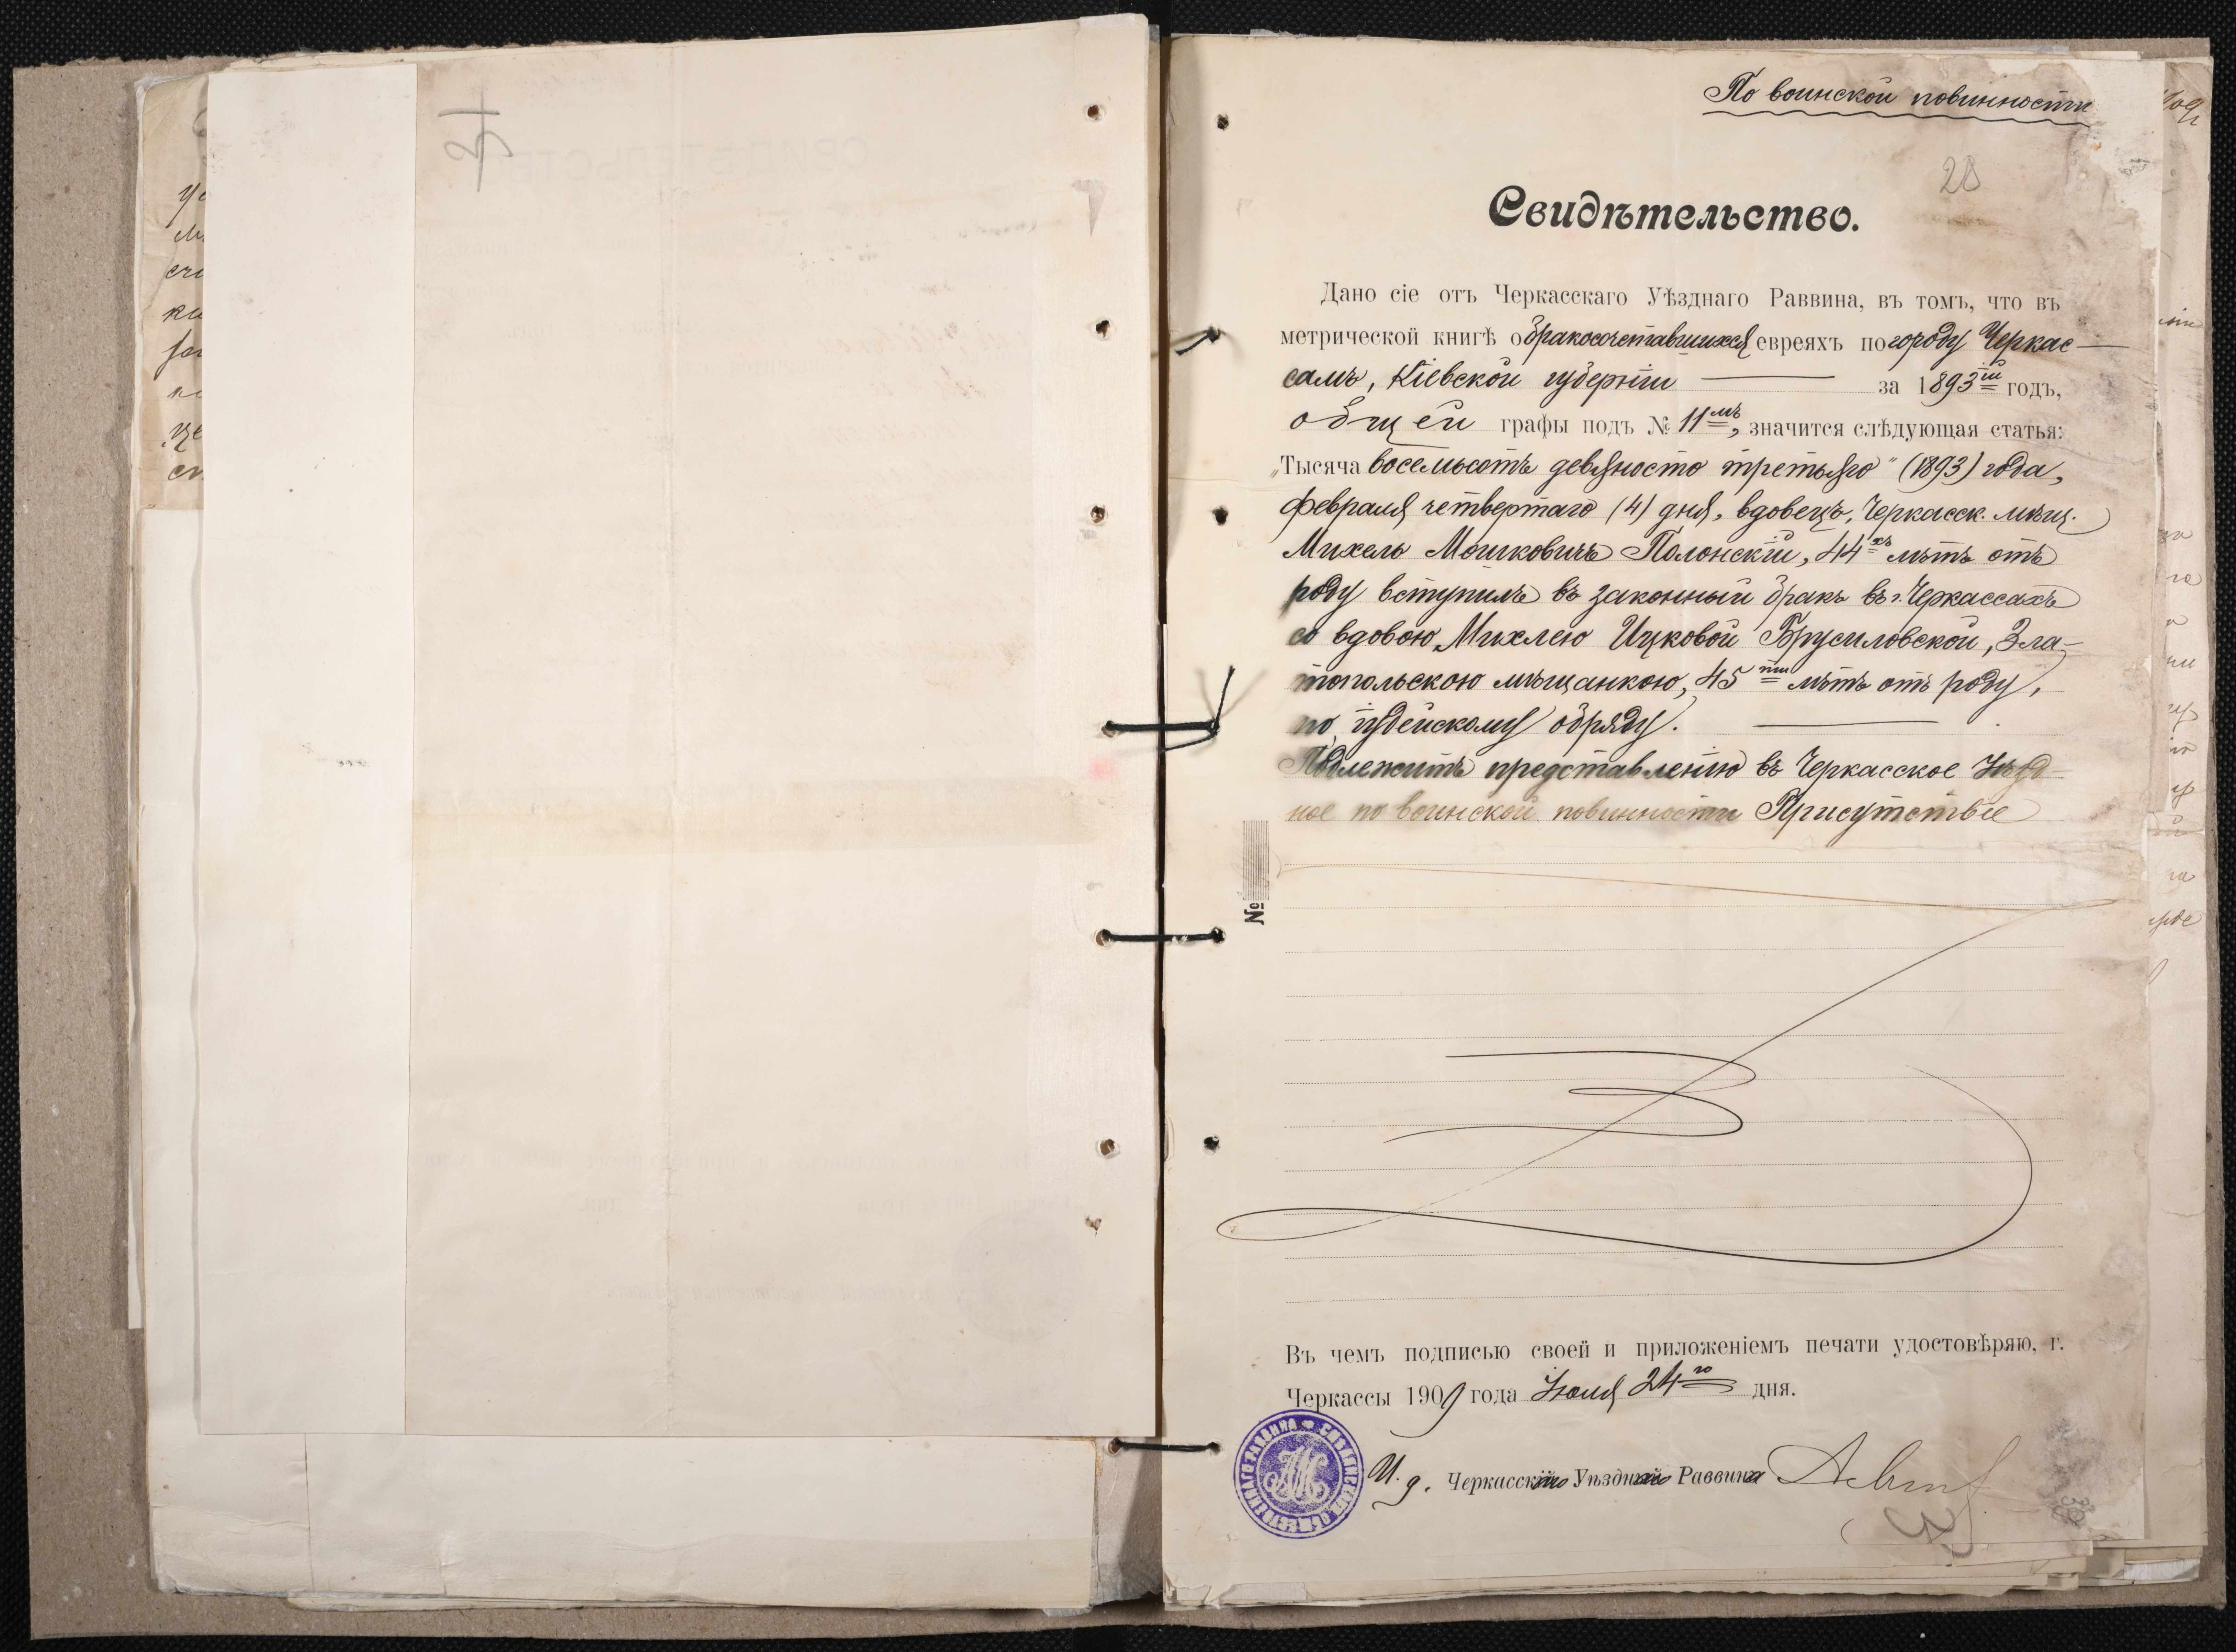 По воинской повинности
28
Свидѣтельство.
Дано сіе отъ Черкасскаго Уѣзднаго Раввина, въ томъ, что въ
метрической книгѣ о бракосочетавшихся евреяхъ по городу Черкас-
самъ, Кіевской губерніи за 1893ій годъ,
общей графы подъ № 11мъ, значится слѣдующая статья:
„Тысяча восемьсотъ девяносто третьяго" (1893) года,
февраля четвертаго (4) дня, вдовецъ, Черкасск. мѣщ.
Михель Мошковичъ Полонскій, 44хъ лѣтъ отъ
роду вступилъ въ законный бракъ въ г. Черкассахъ
со вдовою Михлею Ицковой Брусиловской, Зла-
топольскою мѣщанкою, 45ти лѣтъ отъ роду,
по іудейскому обряду.
Подлежитъ представленію въ Черкасское Уѣзд-
ное по воинской повинности Присутствіе
№
Въ чемъ подписью своей и приложеніемъ печати удостовѣряю, г.
Черкассы 1909 года Іюля 24го дня.
И. д. Черкасскаго Уѣзднаго Раввина